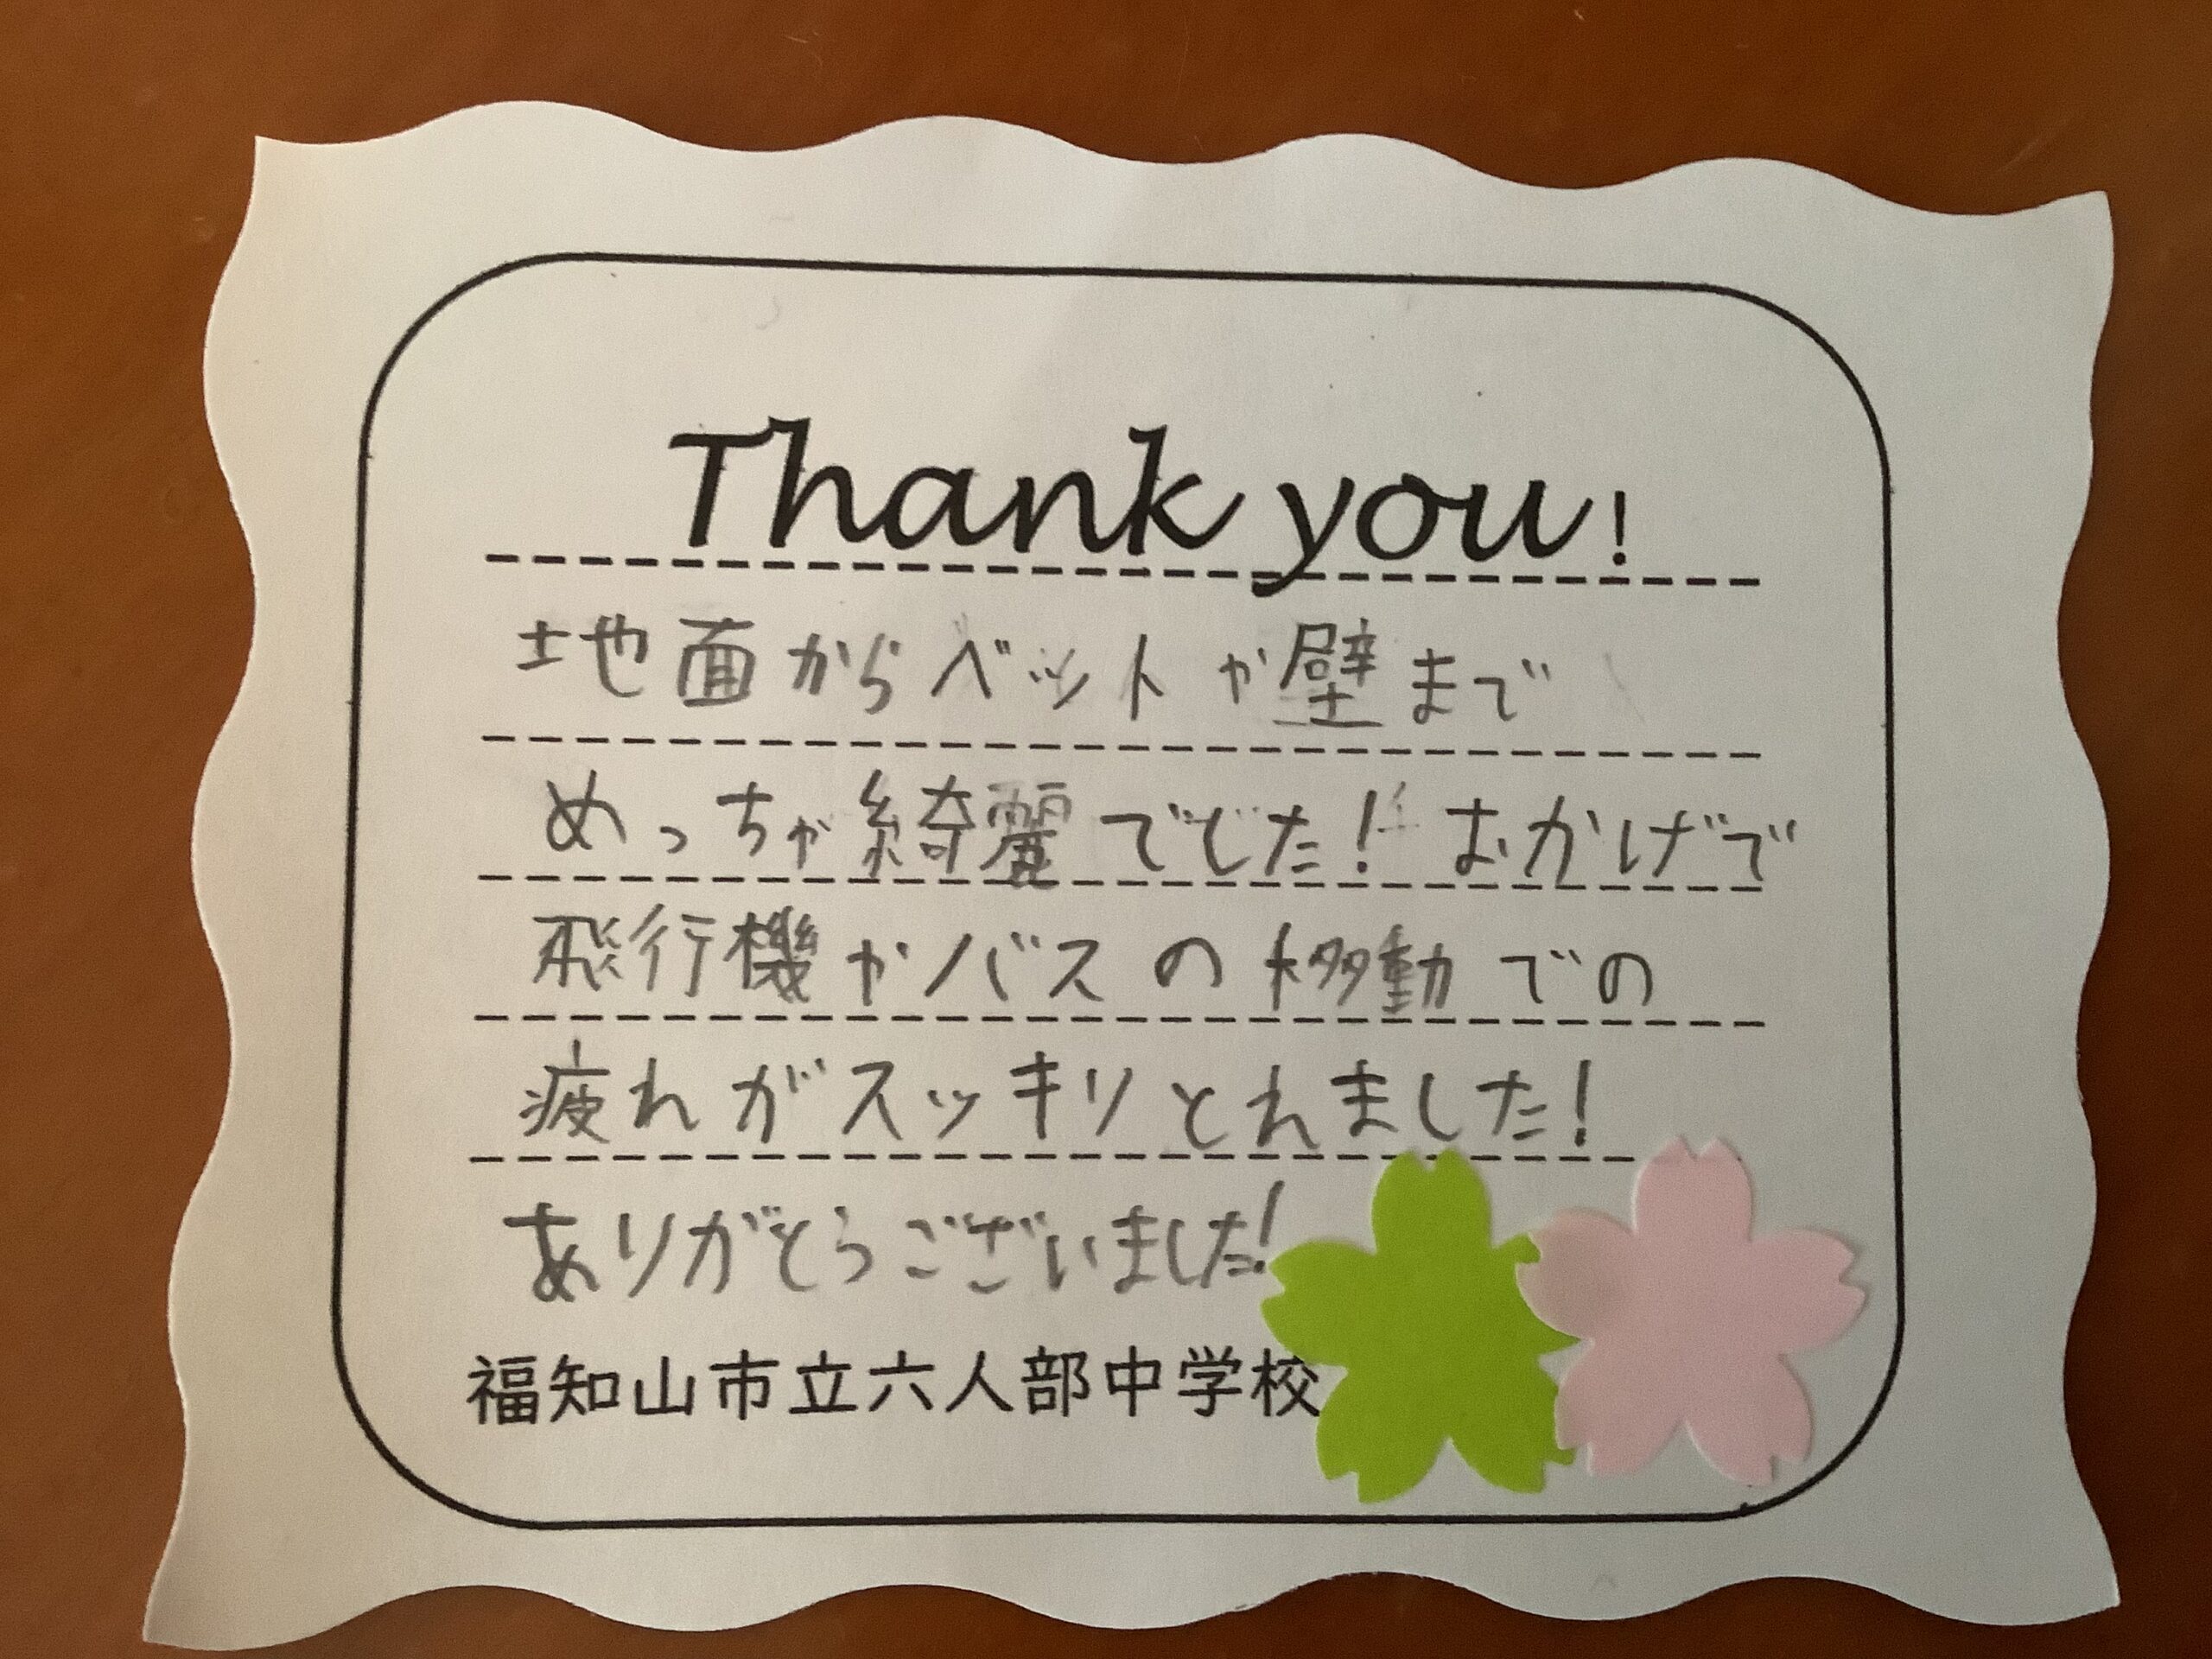 Thank you!
地面からベットや壁まで
めっちゃ綺麗でした! おかげで
飛行機やバスの移動での
疲れがスッキリとれました!
ありがとうございました!
福知山市立六人部中学校